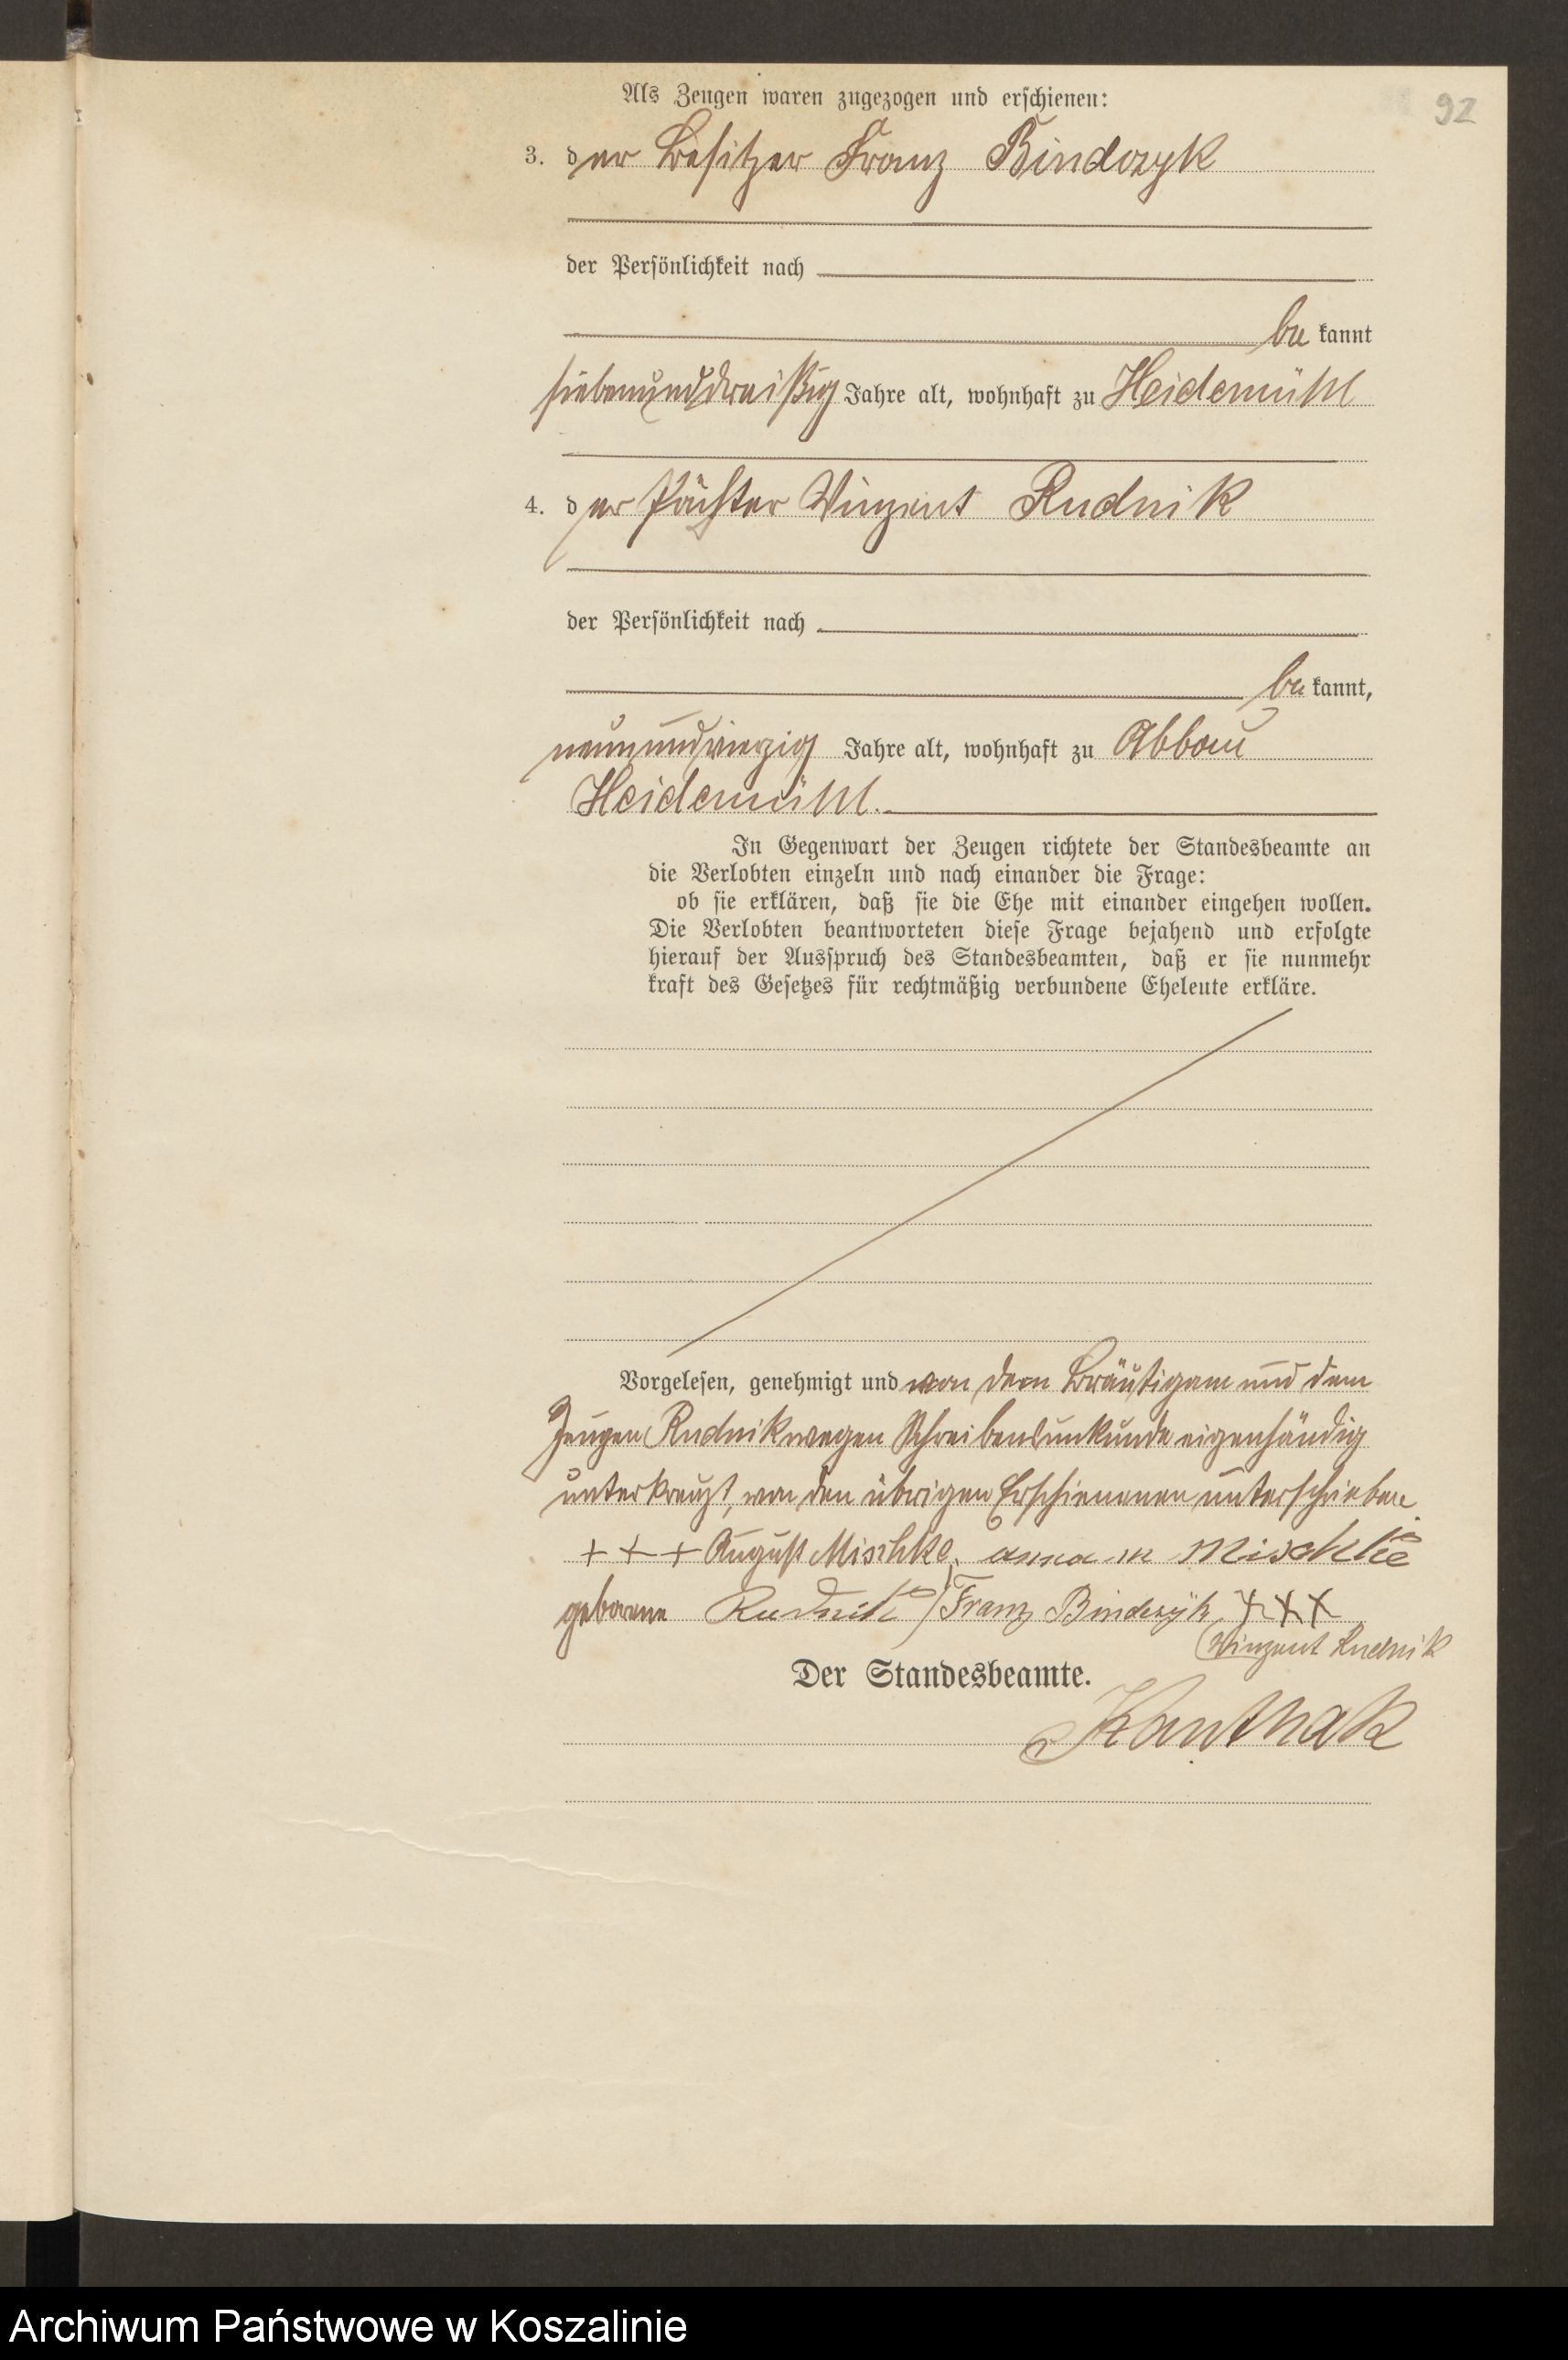 92
Als Zeugen waren zugezogen und erschienen:
3. der Besitzer Franz Bindczyk
der Persönlichkeit nach
be kannt
siebenunddreißig Jahre alt, wohnhaft zu Heidemühl
4. der Pächter Vinzent Rudnik
der Persönlichkeit nach
be kannt,
neunundvierzig Jahre alt, wohnhaft zu Abbau
Heidemühl.
In Gegenwart der Zeugen richtete der Standesbeamte an
die Verlobten einzeln und nach einander die Frage:
ob sie erklären, daß sie die Ehe mit einander eingehen wollen.
Die Verlobten beantworteten diese Frage bejahend und erfolgte
hierauf der Ausspruch des Standesbeamten, daß er sie nunmehr
kraft des Gesetzes für rechtmäßig verbundene Eheleute erkläre.
Vorgelesen, genehmigt und von dem Bräutigam und dem
Zeugen Rudnik wegen Schreibensunkunde eigenhändig
unterkreuzt, von den übrigen Erschienenen unterschrieben.
+ + + August Mischke, anna Mischke
geborene Rudnik Franz Bindczyk +++
Vinzent Rudnik
Der Standesbeamte.
Kanthak
Archiwum Państwowe w Koszalinie